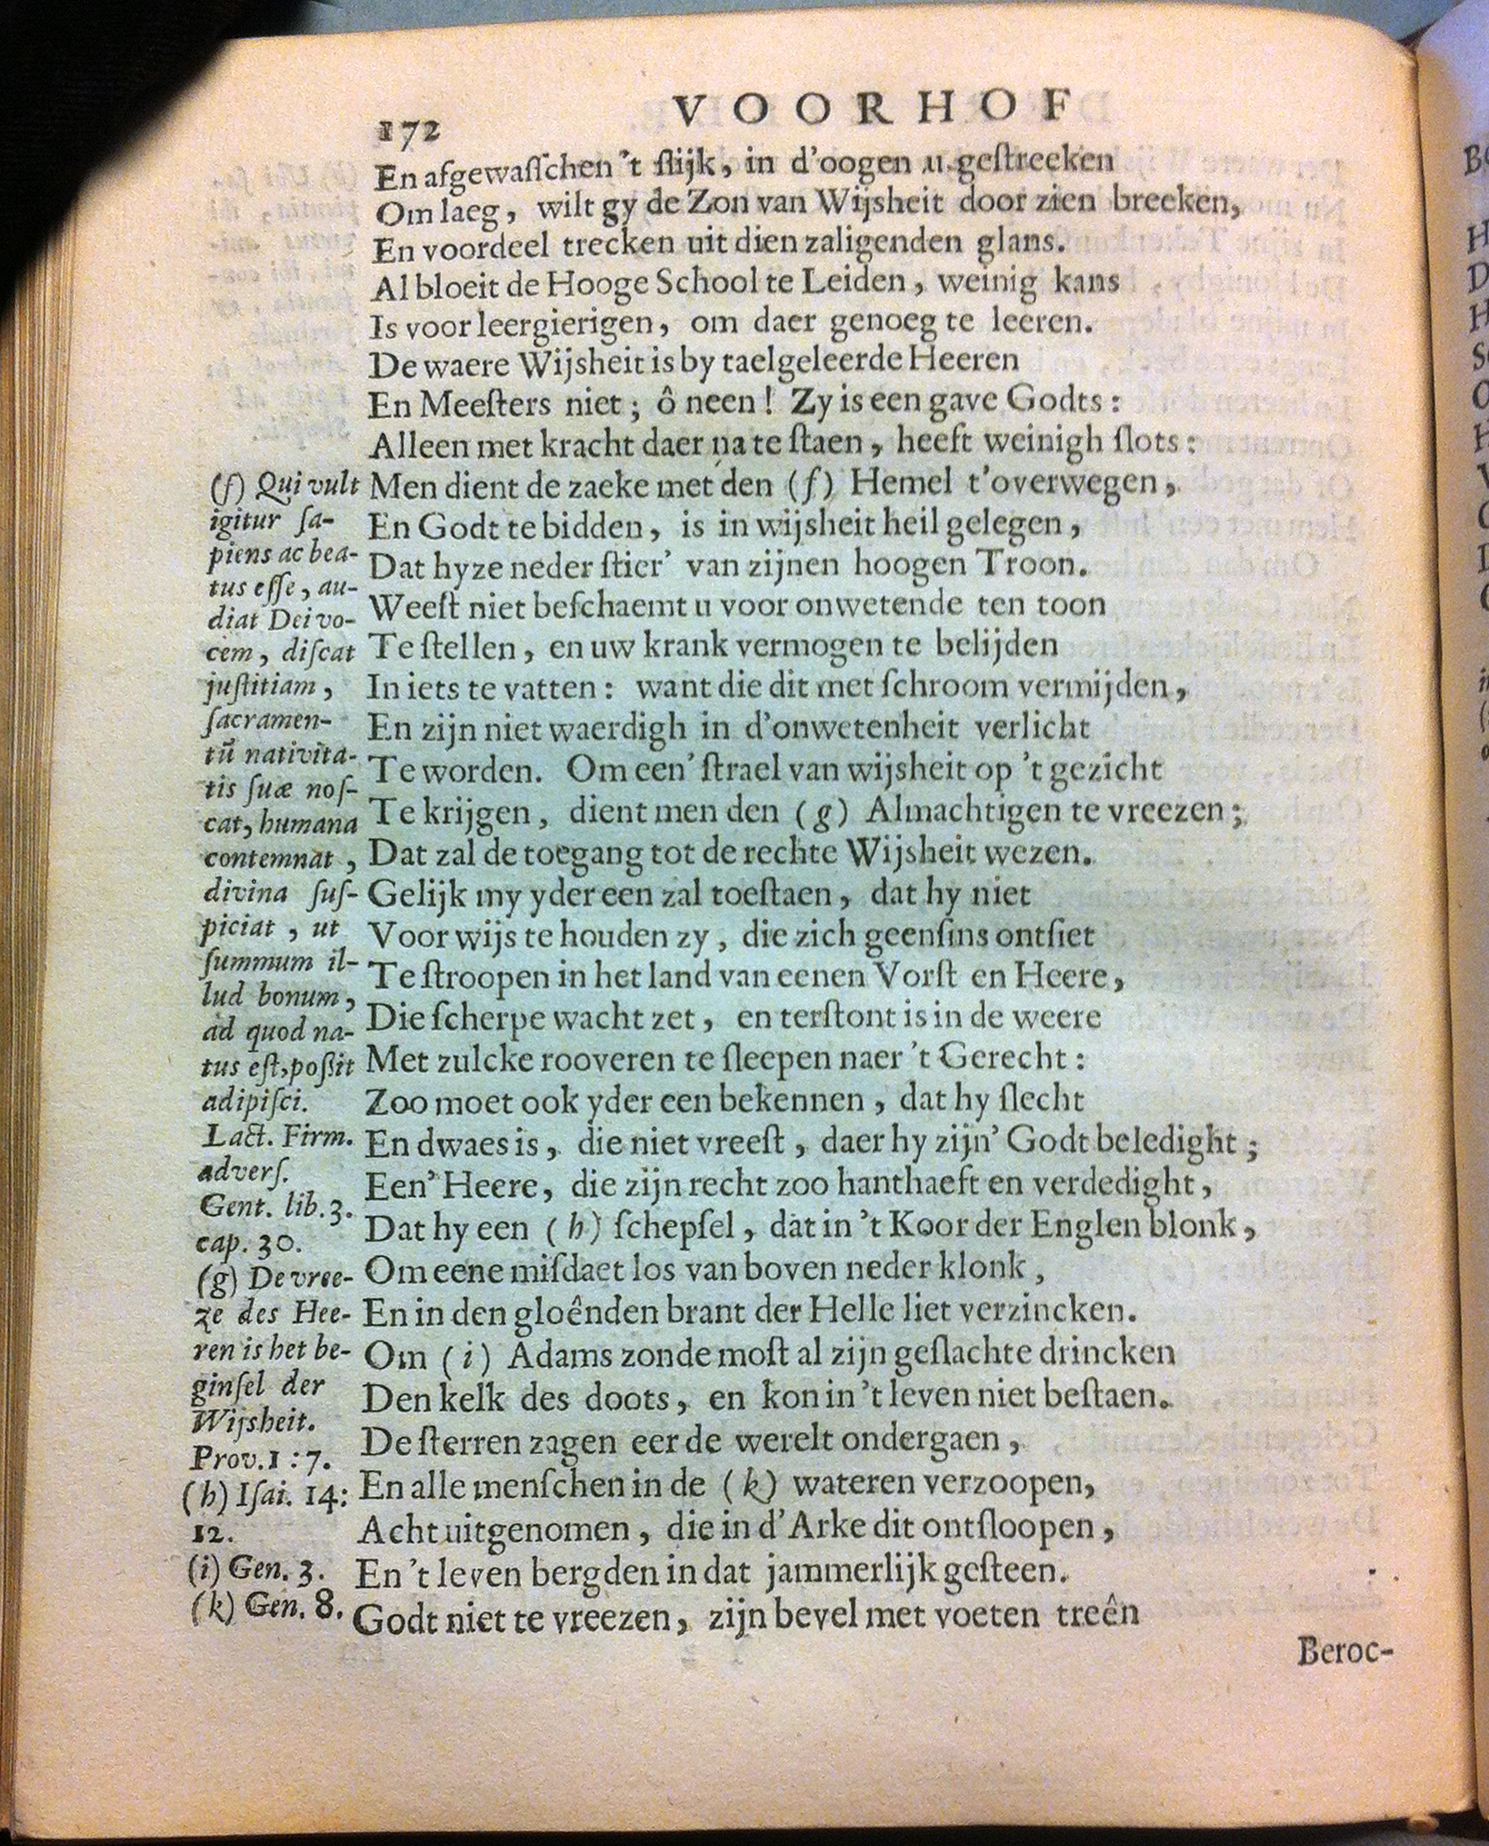 172
VOORHOF
En afgewaſſchen 't ſlijk, in d'oogen u geſtreeken
Om laeg, wilt gy de Zon van Wijsheit door zien breeken,
En voordeel trecken uit dien zaligenden glans.
Al bloeit de Hooge School te Leiden, weinig kans
Is voor leergierigen, om daer genoeg te leeren.
De waere Wijsheit is by taelgeleerde Heeren
En Meeſters niet; ô neen! Zy is een gave Godts:
Alleen met kracht daer na te ſtaen, heeft weinigh ſlots:
Men dient de zaeke met den (f) Hemel t'overwegen,
En Godt te bidden, is in wijsheit heil gelegen,
Dat hyze neder ſtier' van zijnen hoogen Troon.
Weeſt niet beſchaemt u voor onwetende ten toon
Te ſtellen, en uw krank vermogen te belijden
In iets te vatten: want die dit met ſchroom vermijden,
En zijn niet waerdigh in d'onwetenheit verlicht
Te worden. Om een' ſtrael van wijsheit op 't gezicht
Te krijgen, dient men den (g) Almachtigen te vreezen;
Dat zal de toegang tot de rechte Wijsheit wezen.
Gelijk my yder een zal toeſtaen, dat hy niet
Voor wijs te houden zy, die zich geenſins ontſiet
Te ſtroopen in het land van eenen Vorſt en Heere,
Die ſcherpe wacht zet, en terſtont is in de weere
Met zulcke rooveren te ſleepen naer 't Gerecht:
Zoo moet ook yder een bekennen, dat hy ſlecht
En dwaes is, die niet vreeſt, daer hy zijn' Godt beledight;
Een' Heere, die zijn recht zoo hanthaeft en verdedight,
Dat hy een (h) ſchepſel, dat in 't Koor der Englen blonk,
Om eene miſdaet los van boven neder klonk,
En in den gloênden brant der Helle liet verzincken.
Om (i) Adams zonde moſt al zijn geſlachte drincken
Den kelk des doots, en kon in 't leven niet beſtaen.
De ſterren zagen eer de werelt ondergaen,
En alle menſchen in de (k) wateren verzoopen,
Acht uitgenomen, die in d'Arke dit ontſloopen,
En 't leven bergden in dat jammerlijk geſteen.
Godt niet te vreezen, zijn bevel met voeten treên
Beroc-
(f) Qui vult
igitur ſa-
piens ac bea-
tus eſſe, au-
diat Dei vo-
cem, diſcat
juſtitiam,
ſacramen-
tū nativita-
tis ſuæ noſ-
cat, humana
contemnat,
divina ſuſ-
piciat, ut
ſummum il-
lud bonum,
ad quod na-
tus eſt, poſſit
adipiſci.
Lact. Firm.
adverſ.
Gent. lib. 3.
cap. 30.
(g) De vree-
ze des Hee-
ren is het be-
ginſel der
Wijsheit.
Prov. 1 : 7.
(h) Iſai. 14:
12.
(i) Gen. 3.
(k) Gen. 8.